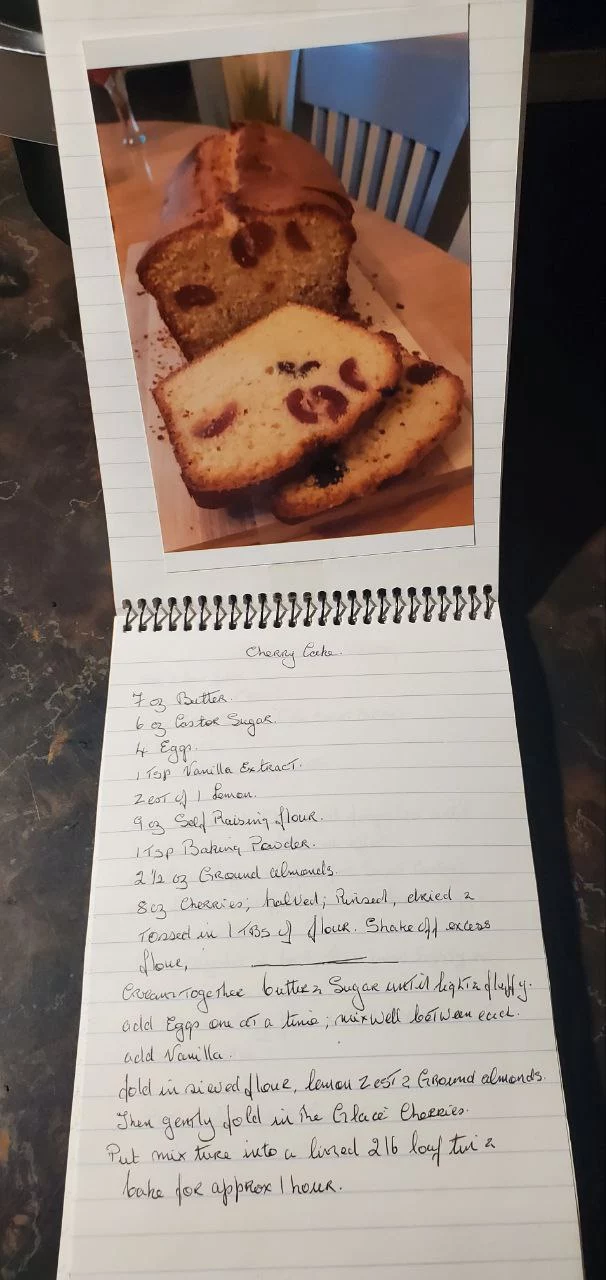 Cherry Cake.
7 oz Butter.
6 oz Castor Sugar.
4 Eggs.
1 Tsp Vanilla Extract.
Zest of 1 Lemon.
9 oz Self Raising flour.
1 Tsp Baking Powder.
2 1/2 oz Ground almonds.
8 oz Cherries; halved; Rinsed, dried &
Tossed in 1 TBS of flour. Shake off excess
flour,
Cream Together butter & Sugar until light & fluffy.
add Eggs one at a time; mix well between each.
add Vanilla.
fold in sieved flour, lemon Zest & Ground almonds.
Then gently fold in the Glacé Cherries.
Put mixture into a lined 2lb loaf tin &
bake for approx 1 hour.